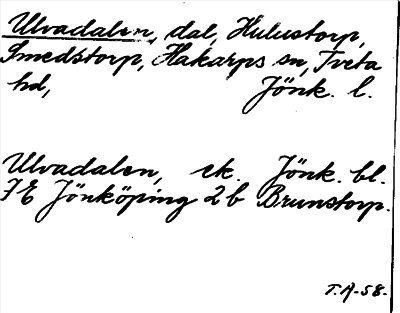 Ulvadalen, dal, Hulustorp,
Smedstorp, Hakarps sn, Tveta
hd, Jönk. l.
Ulvadalen, ek. Jönk. bl.
7E Jönköping 2b Brunstorp.
T.A-58-